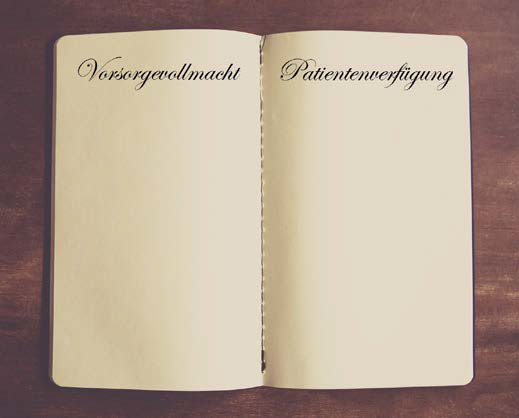 Vorsorgevollmacht
Patientenverfügung